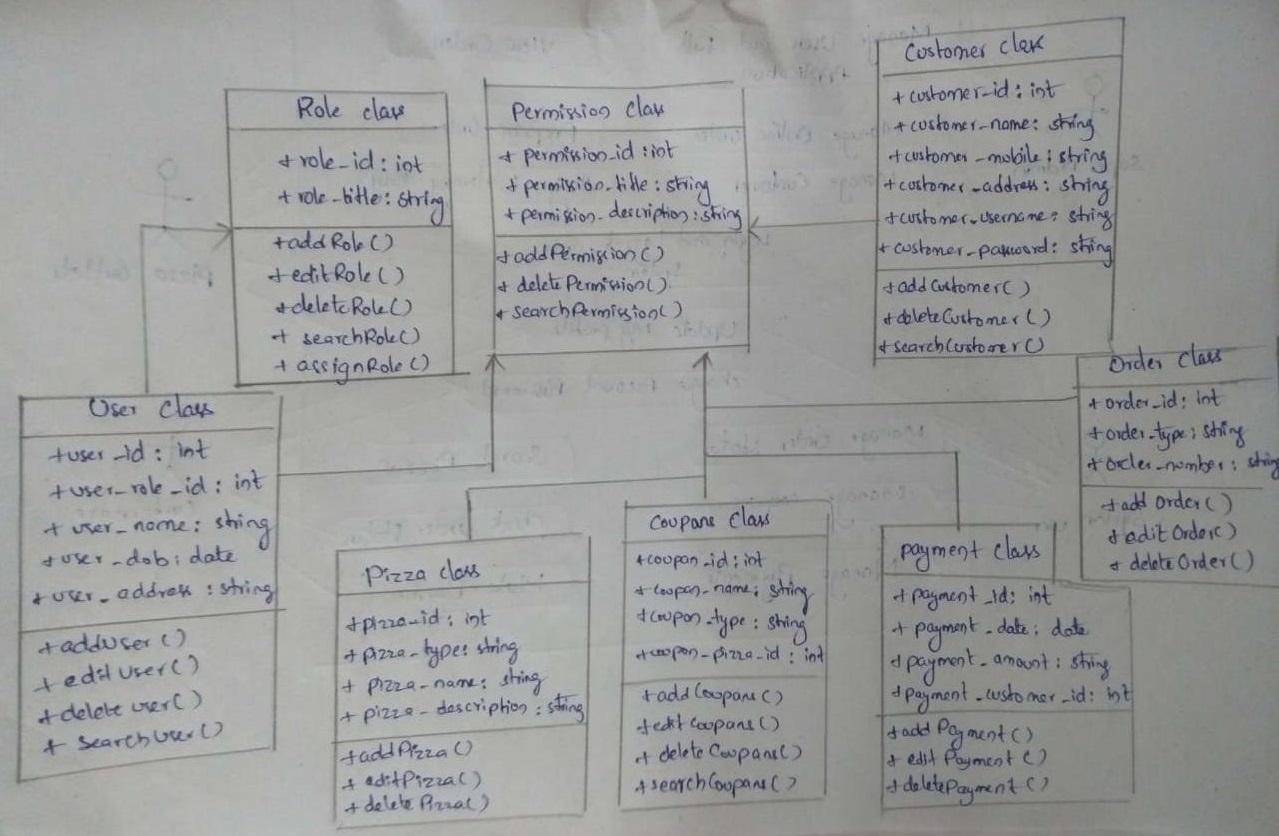 Role class
+ role_id: int
+ role_title: string
+ addRole()
+ editRole()
+ deleteRole()
+ searchRole()
+ assignRole()
Permission class
+ permission_id: int
+ permission_title: string
+ permission_description: string
+ addPermission()
+ deletePermission()
+ searchPermission()
Customer class
+ customer_id: int
+ customer_name: string
+ customer_mobile: string
+ customer_address: string
+ customer_username: string
+ customer_password: string
+ addCustomer()
+ deleteCustomer()
+ searchCustomer()
User class
+ user_id: int
+ user_role_id: int
+ user_name: string
+ user_dob: date
+ user_address: string
+ addUser()
+ editUser()
+ delete user()
+ searchUser()
Pizza class
+ pizza_id: int
+ pizza_type: string
+ pizza_name: string
+ pizza_description: string
+ addPizza()
+ editPizza()
+ deletePizza()
Coupans class
+ coupon_id: int
+ coupon_name: string
+ coupon_type: string
+ coupon_pizza_id: int
+ addCoupans()
+ editCoupans()
+ deleteCoupans()
+ searchCoupans()
payment class
+ payment_id: int
+ payment_date: date
+ payment_amount: string
+ payment_customer_id: int
+ addPayment()
+ editPayment()
+ deletePayment()
Order class
+ order_id: int
+ order_type: string
+ order_number: string
+ add Order()
+ editOrder()
+ deleteOrder()